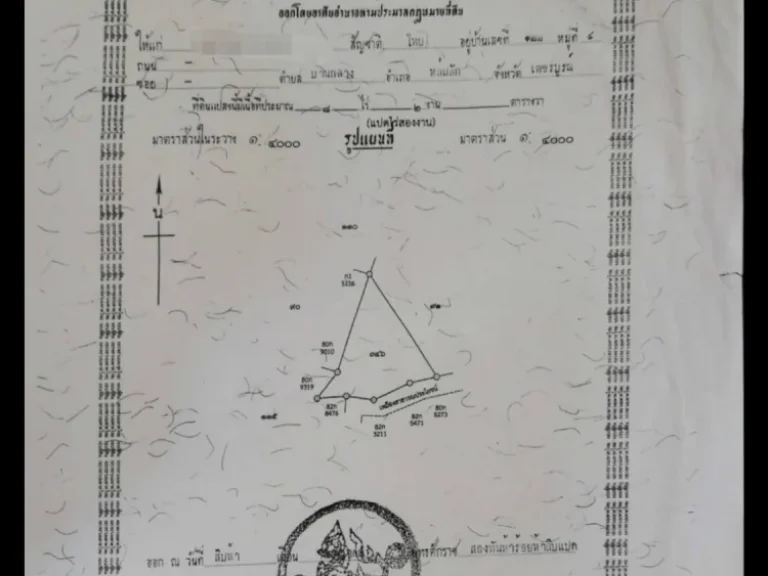 ออกโดยอาศัยอำนาจตามประมวลกฎหมายที่ดิน
ให้แก่ สัญชาติ ไทย อยู่บ้านเลขที่ หมู่ที่ ๔
ถนน –
ซอย – ตำบล บ้านกลาง อำเภอ หล่มสัก จังหวัด เพชรบูรณ์
ที่ดินแปลงนี้มีเนื้อที่ประมาณ ๘ ไร่ ๒ งาน ตารางวา
(แปดไร่สองงาน)
มาตราส่วนในระวาง ๑: ๔๐๐๐ รูปแผนที่ มาตราส่วน ๑: ๔๐๐๐
น
๑๑๐
๙๐
5336
80ก
9010
๓๔๖
80ก
9319
82ก
8476
๑๑๕
82ก
3211
82ก
5471
80ก
6273
เหมืองสาธารณประโยชน์
ออก ณ วันที่ สิบห้า เดือน พุทธศักราช สองพันห้าร้อยห้าสิบแปด